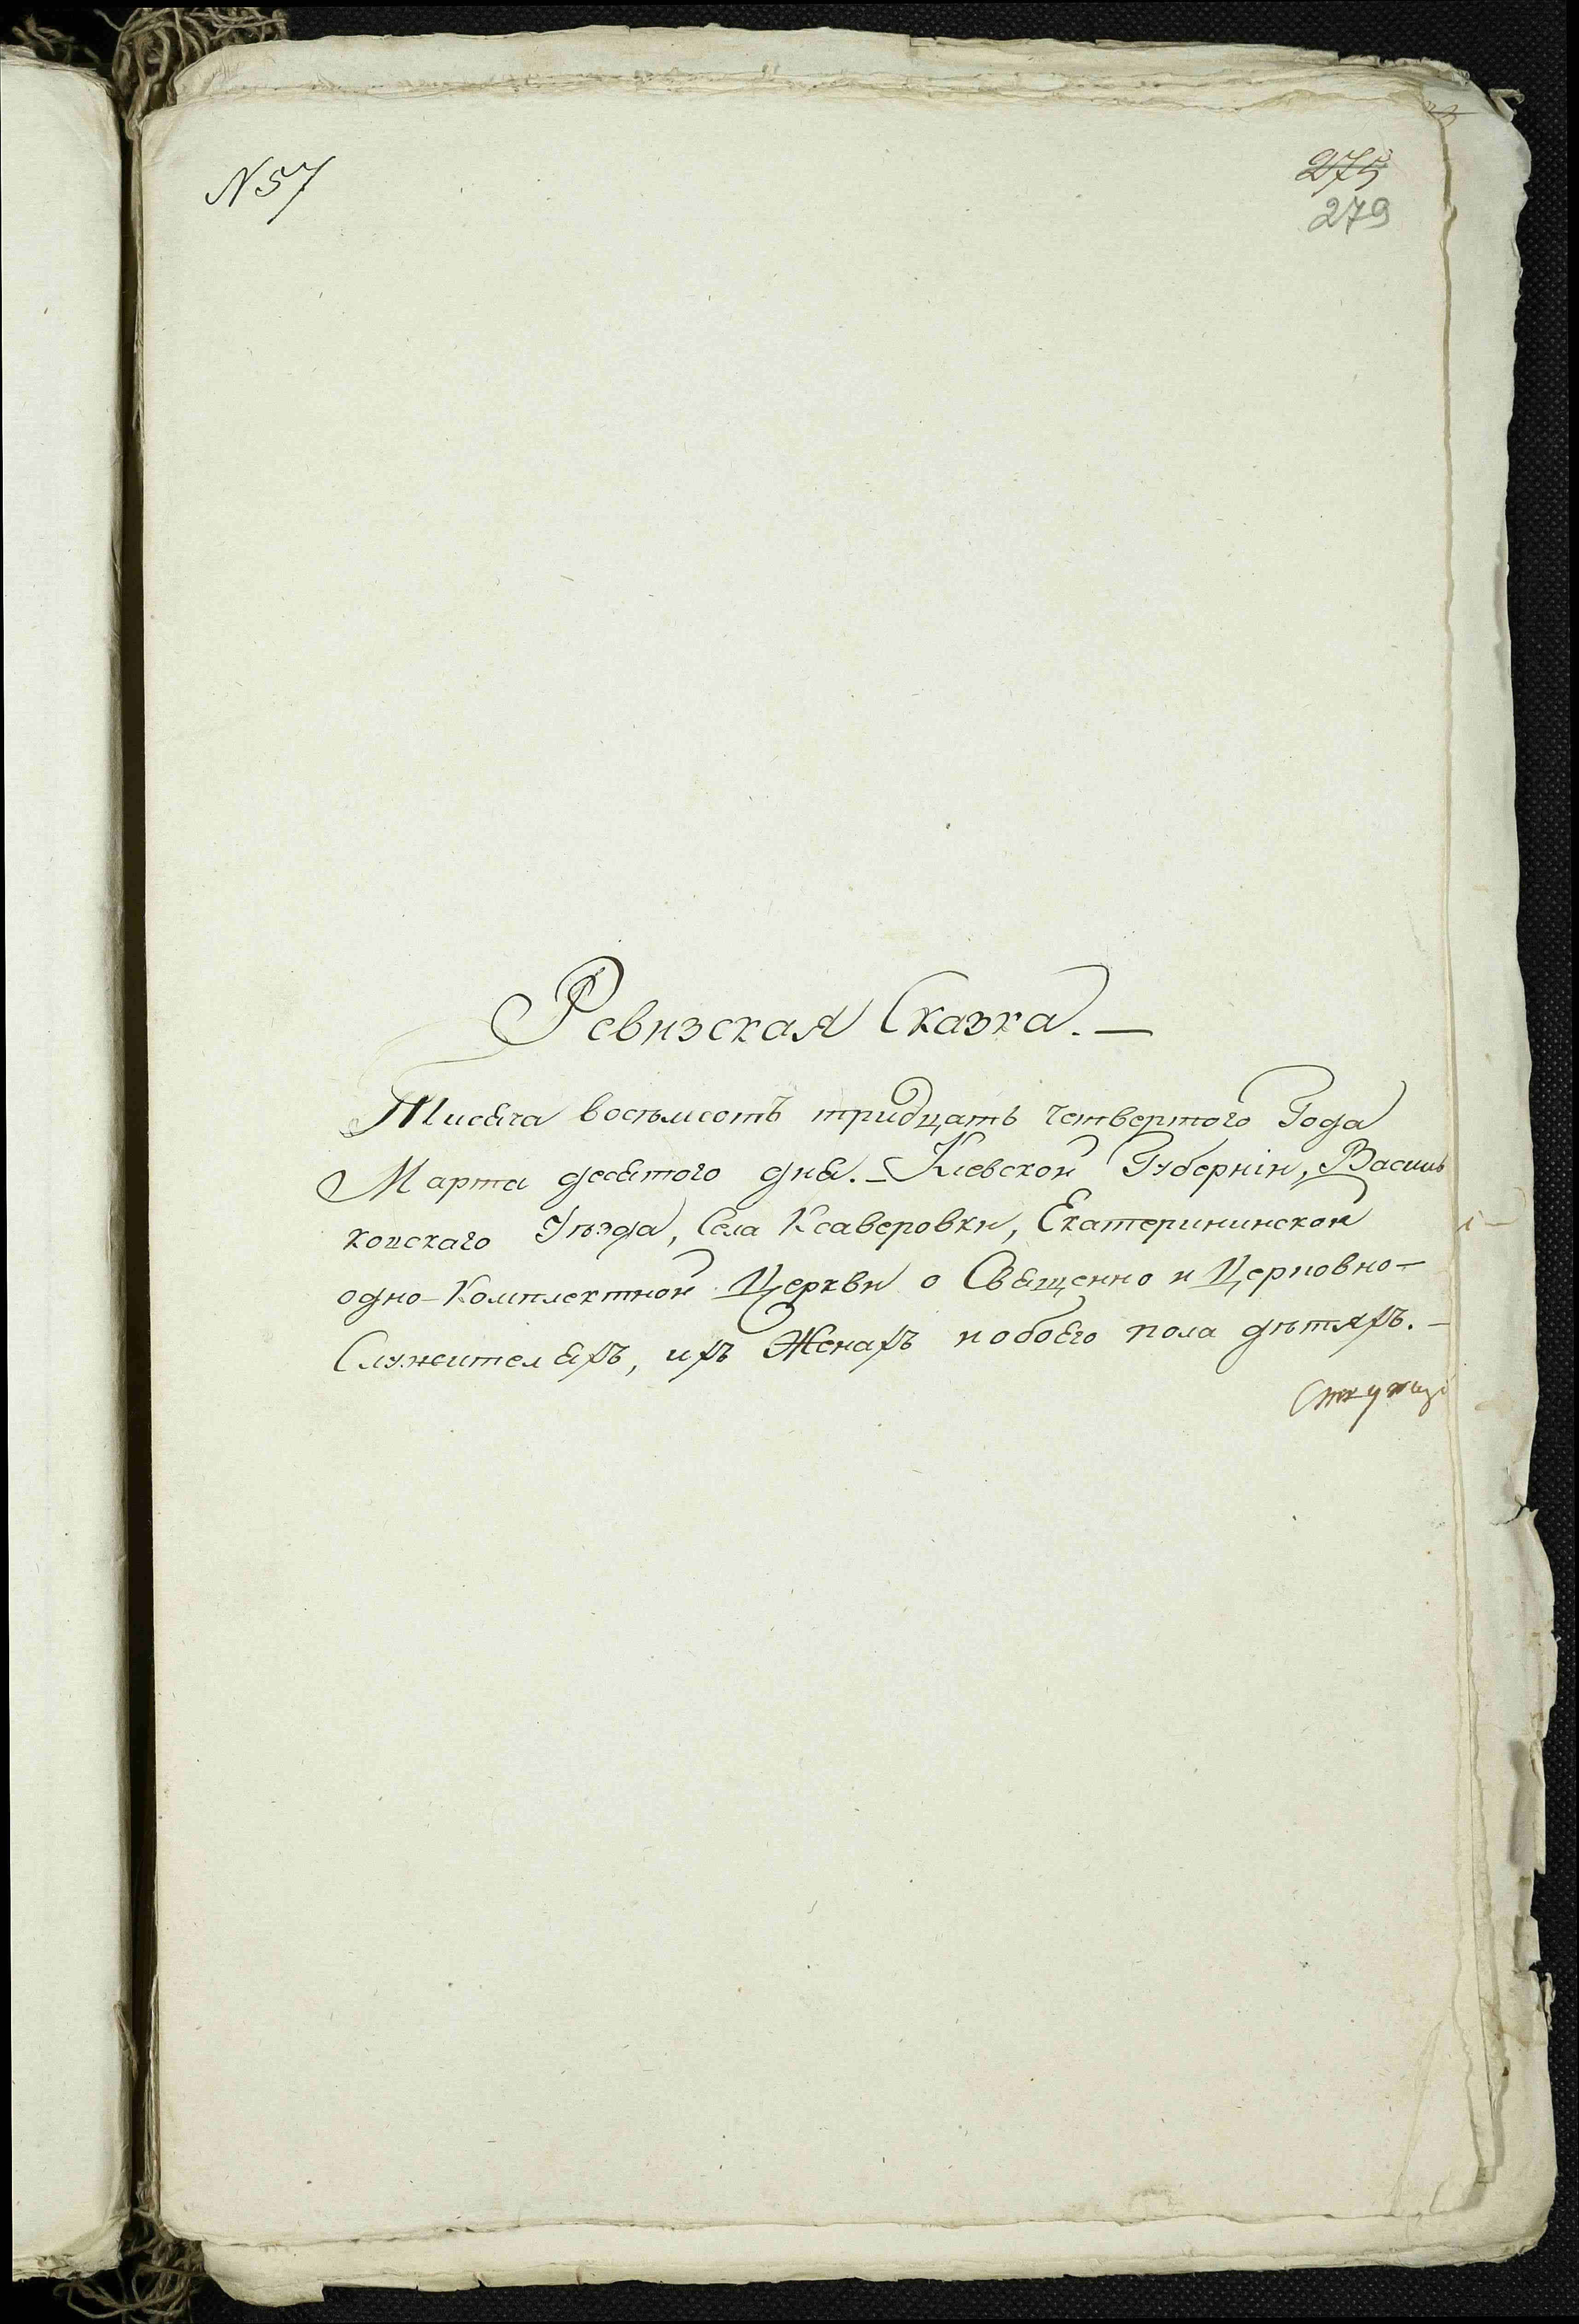 N 57
275
279
Ревизская Сказка. —
Тисяча восьмсотъ тридцать четвертого Года
Марта десятого дня. — Кіевской Губерніи, Василь
ковскаго Уѣзда, Села Ксаверовки, Екатерининской
одно-Комплектной Церкви о Священно и Церковно-
Служителяхъ, ихъ Женахъ и обоего пола дѣтяхъ. —